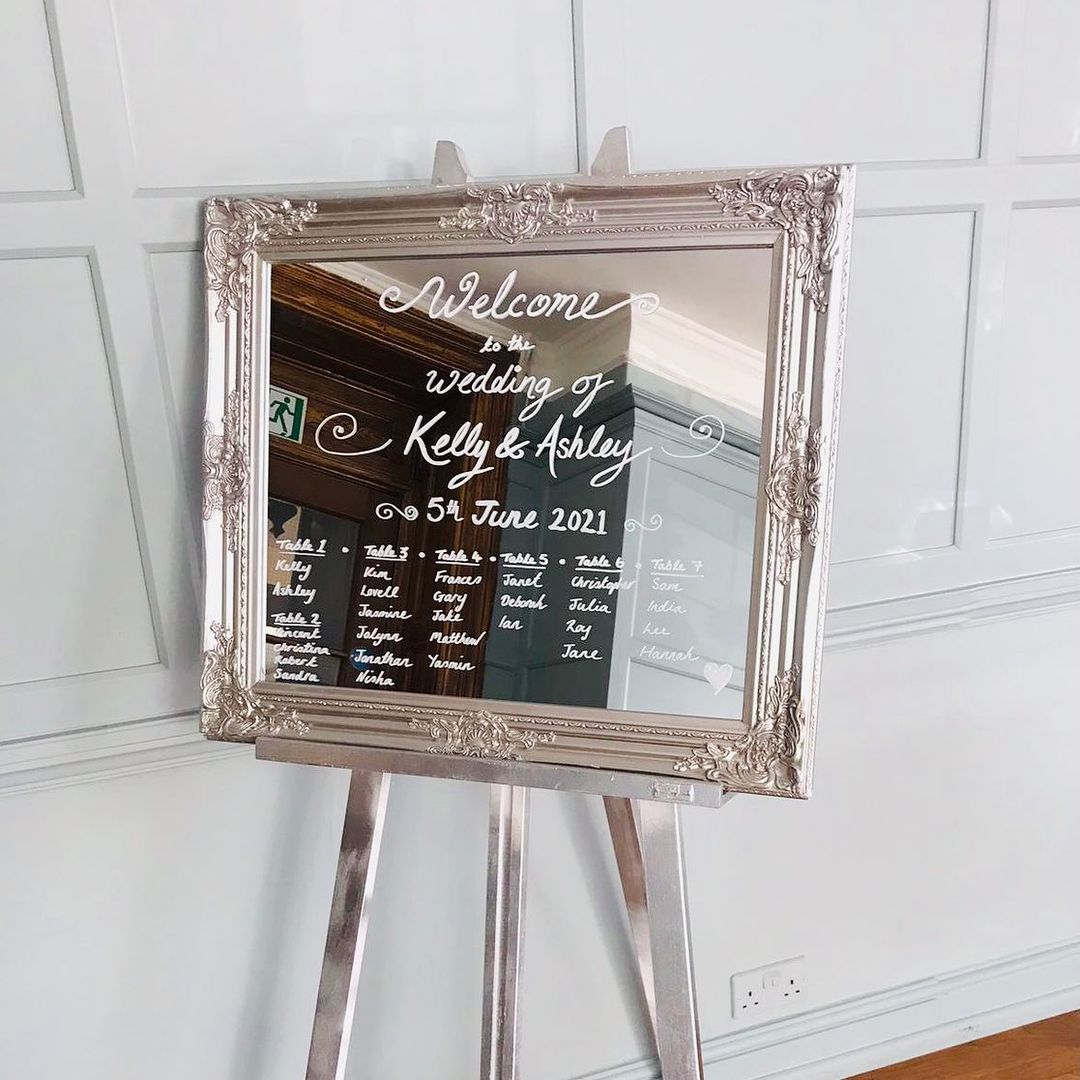 Welcome
to the
Wedding of
Kelly & Ashley
5th June 2021
Table 1
Kelly
Ashley
Table 2
Vincent
Christina
Robert
Sandra
Table 3
Kim
Lovell
Jasmine
Jalynn
Jonathan
Nisha
Table 4
Frances
Gary
Jake
Matthew
Yasmin
Table 5
Janet
Deborah
Ian
Table 6
Christopher
Julia
Roy
Jane
Table 7
Sam
India
Lee
Hannah